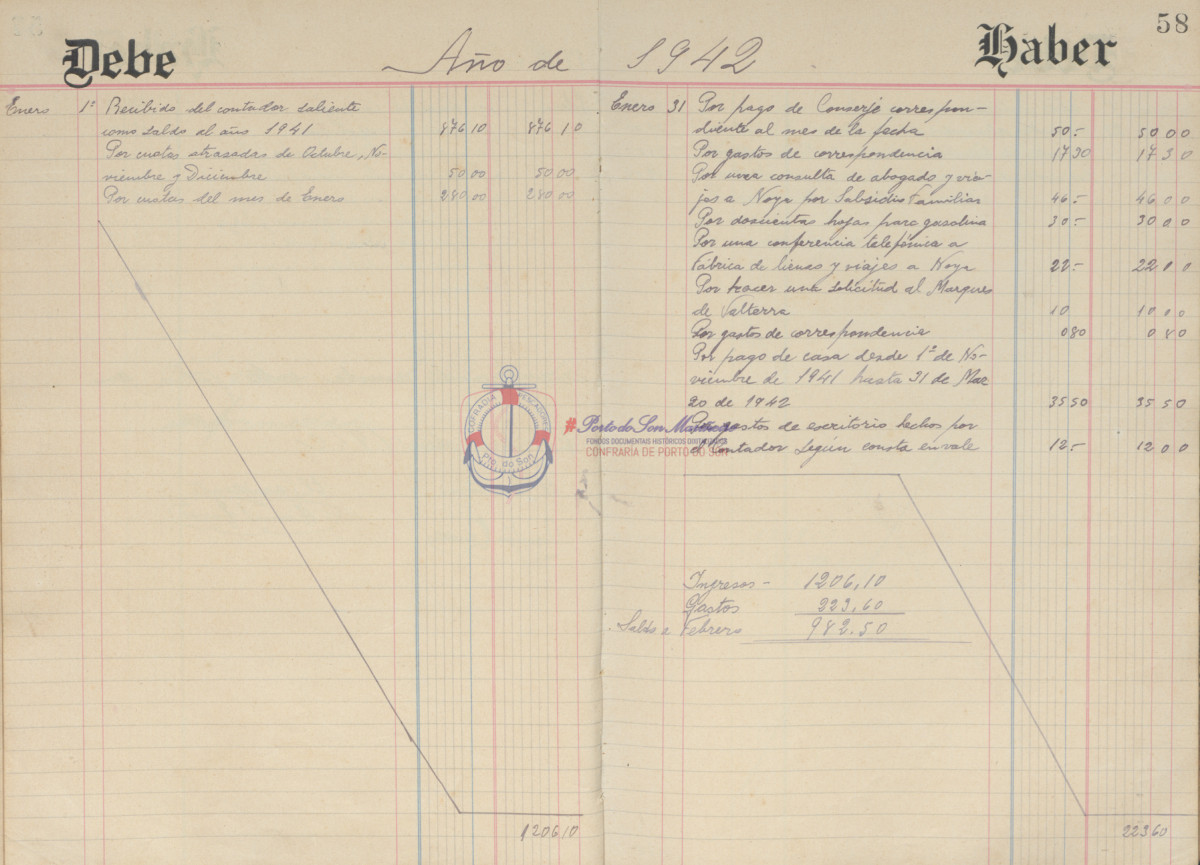 58
Debe
Año de 1942
Haber
Enero 1º Recibido del contador saliente
como saldo al año 1941 876 10 876 10
Por cuotas atrasadas de Octubre, No-
viembre y Diciembre 50 00 50 00
Por cuotas del mes de Enero 280 00 280 00
1206 10
Enero 31 Por pago de Conserje correspon-
diente al mes de la fecha 50 - 50 00
Por gastos de correspondencia 17 30 17 30
Por una consulta de abogado y via-
jes a Noya por Subsidio Familiar 46 - 46 00
Por doscientas hojas para gasolina 30 - 30 00
Por una conferencia telefónica a
Fábrica de lienas y viajes a Noya 22 - 22 00
Por hacer una solicitud al Marques
de Valterra 10 10 00
Por gastos de correspondencia 0 80 0 80
Por pago de casa desde 1º de No-
viembre de 1941 hasta 31 de Mar
zo de 1942 35 50 35 50
Por gastos de escritorio hechos por
el Contador según consta en vale 12 - 12 00
Ingresos - 1206,10
Gastos 223,60
Saldo a Febrero 982.50
223 60
COFRADIA PESCADORES
Pto. do Son
#PortodoSonMariñeiro
FONDOS DOCUMENTAIS HISTÓRICOS
CONFRARÍA DE PORTO DO SON